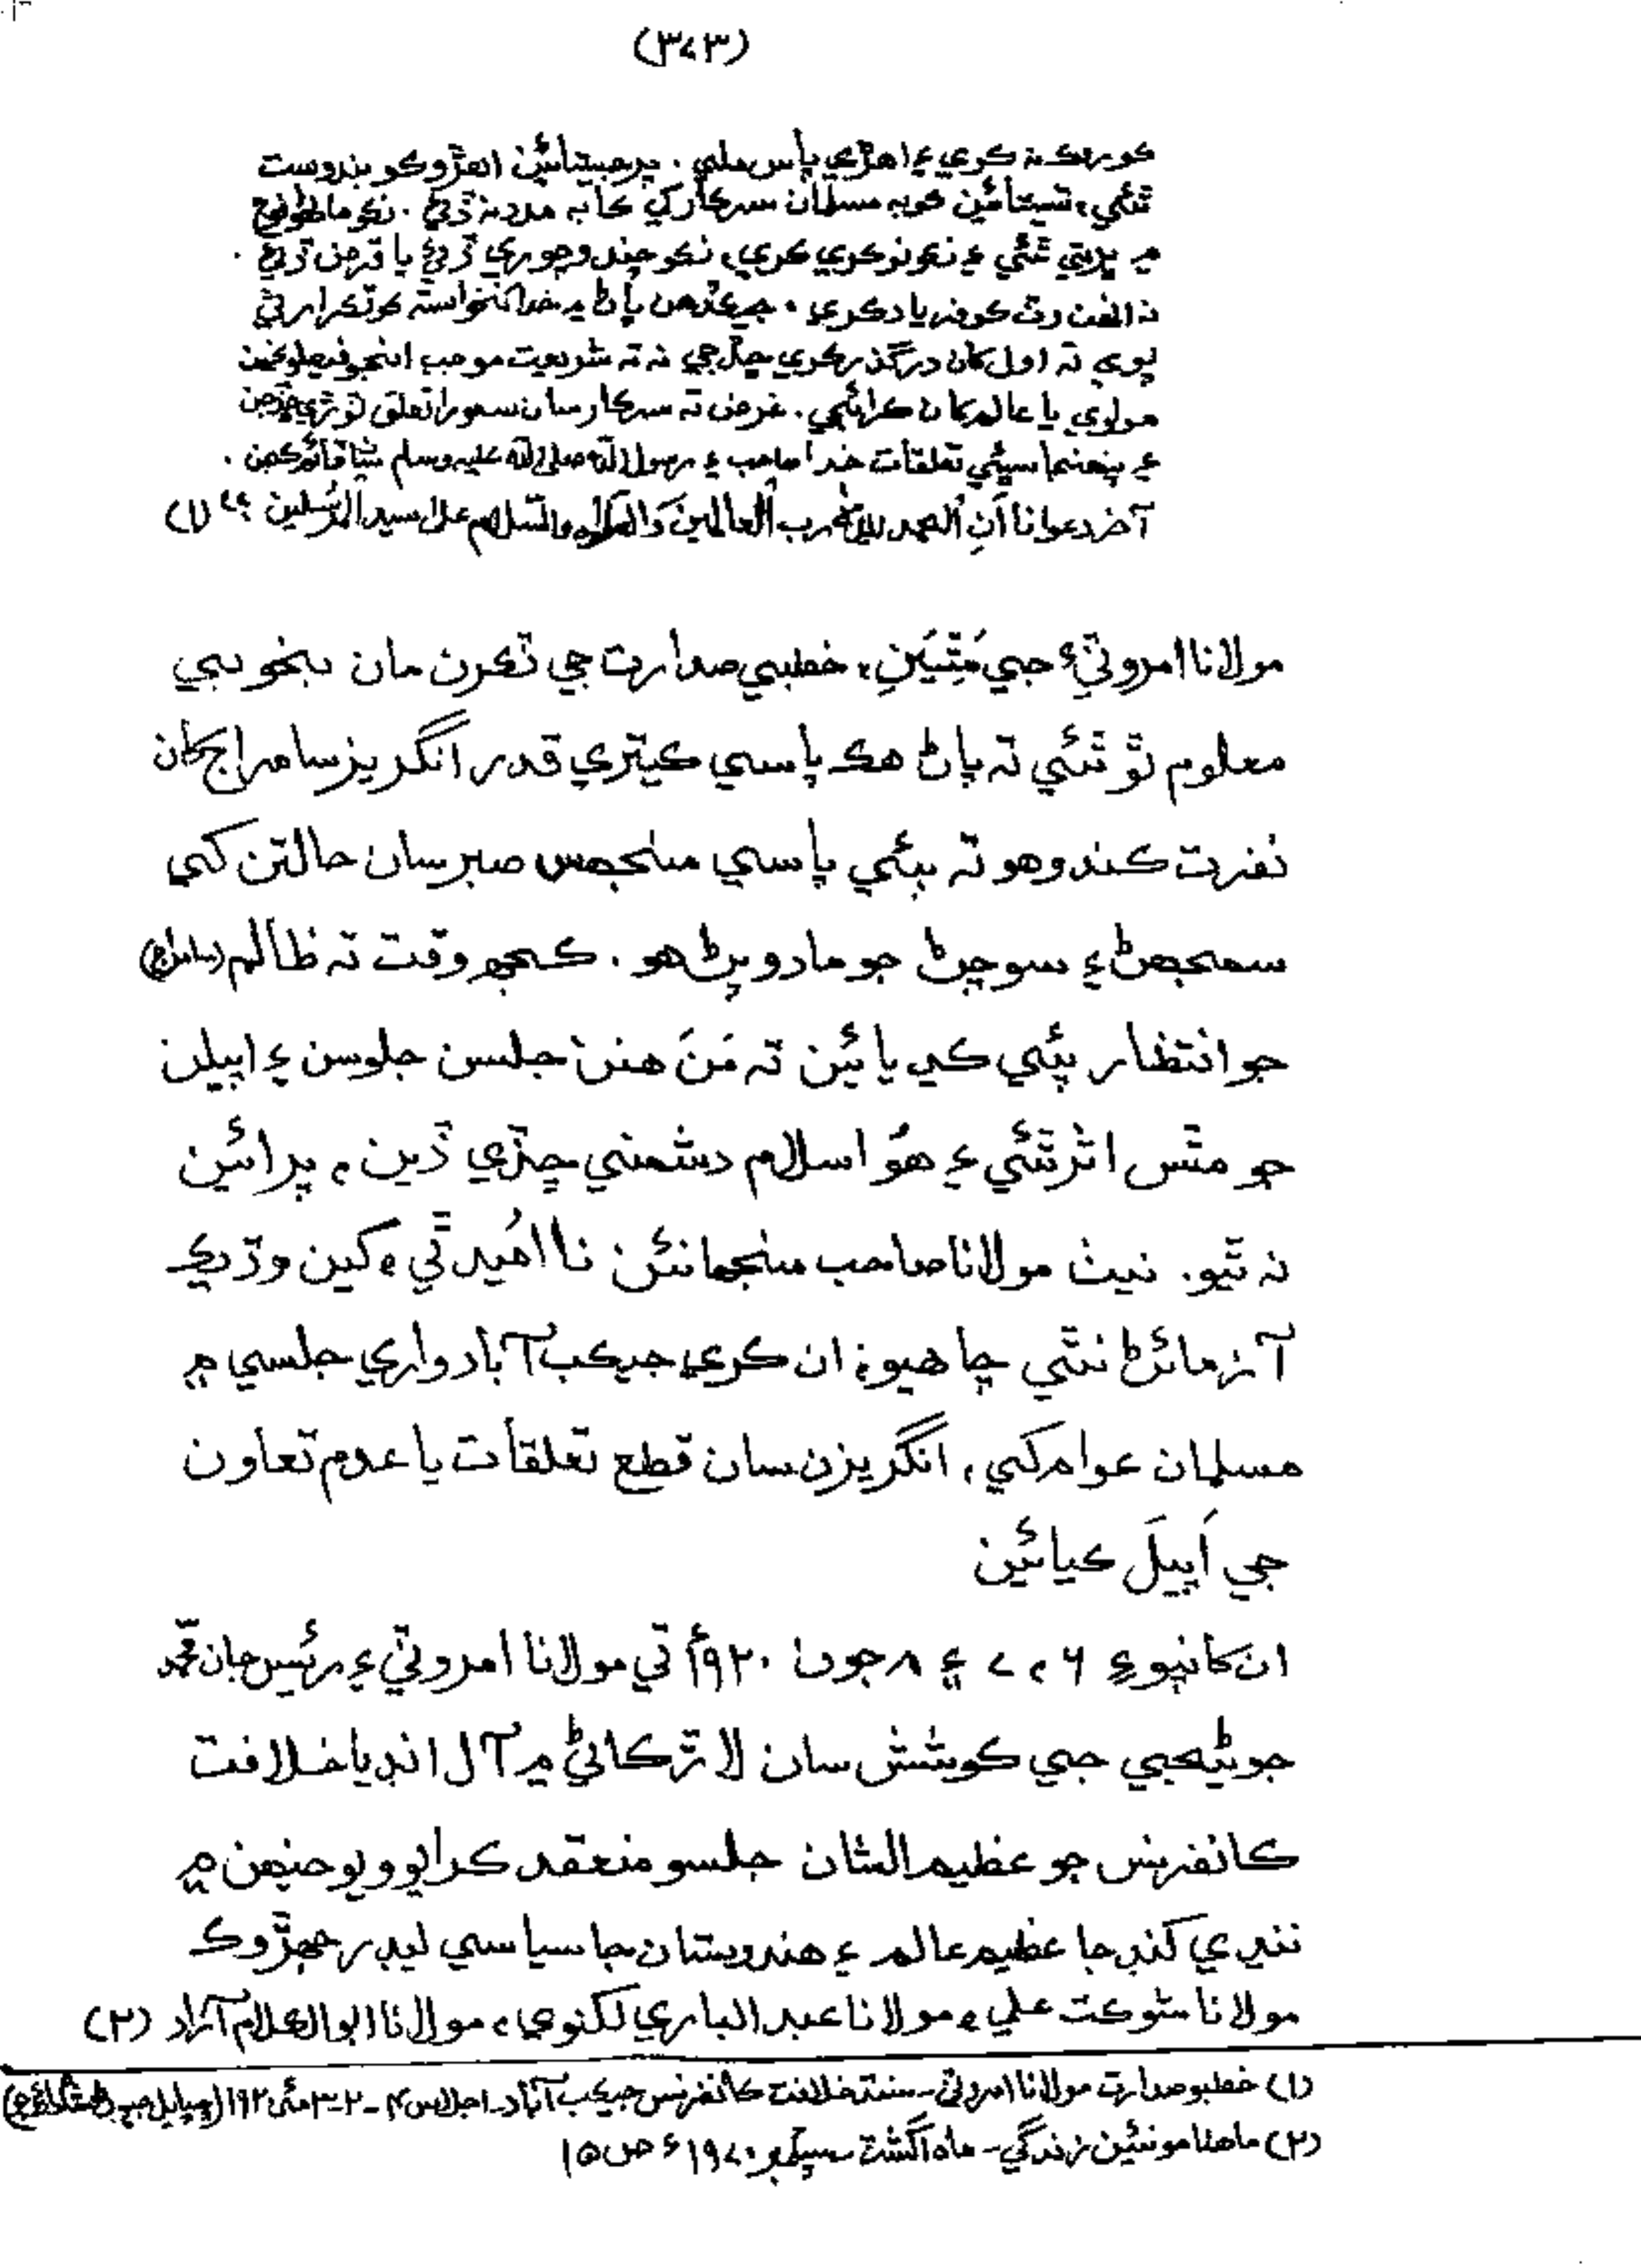 (٣٧٣)
ڪو رهڪ نہ ڪري ۽ اهڙي پاس ملي. پر جيستائين اهڙو ڪو بندوست
ٿئي، تيستائين ڪوبہ مسلمان سرڪار کي ڪا بہ مدد نہ ڏئي. نڪو
۾ ڀرتي ٿئي ۽ نڪو نوڪري ڪري، نڪو چندو چوري ڏئي يا قرض ڏئي.
نہ انهن وٽ ڪو فرياد ڪري. جيڪڏهن پاڻ ۾ خدانخواستہ ڪو تڪرار ٿي
پوي تہ اول کان درگذر ڪري ڇڏجي نہ تہ شريعت موجب انهجو فيصلو
مولوي يا عالم کان ڪرائجي. غرض تہ سرڪار سان سمورا تعلق ٽوڙي ڇڏجن
۽ پنهنجا سڀئي تعلقات خدا صاحب ۽ رسول الله صلي الله عليہ وسلم قائم ڪجن.
آخر دعوانا اَنِ الحمد لِلّٰہِ رب العالمين وَالصلواة والسّلام علیٰ سيد المُرسلين ”(١)
مولانا امروٽيءَ جي مَٿِيَنِ، خطبي صدارت جي ٽڪرن مان بخوبي
معلوم ٿو ٿئي تہ پاڻ هڪ پاسي ڪيتري قدر انگريز سامراج کان
نفرت ڪندو هو تہ ٻئي پاسي منجهس صبر سان حالتن کي
سمجهڻ ۽ سوچڻ جو مادو پڻ هو. ڪجهہ وقت تہ ظالم (سامراج)
جو انتظار پئي ڪيائين تہ مَنَ هنن جلسن جلوسن ۽ اپيلن
جو مٿس اثر ٿئي ۽ هُو اسلام دشمني ڇڏي ڏين، پر ائين
نہ ٿيو. نيٺ مولانا صاحب منجهانئن نااُميد ٿي، کين وڌيڪ
آزمائڻ نٿي چاهيو، ان ڪري جيڪب آباد واري جلسي ۾
مسلمان عوام کي، انگريزن سان قطع تعلقات يا عدم تعاون
جي اَپيلَ ڪيائين
ان کانپوءِ ٦، ٧ ۽ ٨ جون ١٩٢٠ع تي مولانا امروٽي ۽ رئيس جان محمد
جوڻيجي جي ڪوشش سان لاڙڪاڻي ۾ آل انڊيا خلافت
ڪانفرنس جو عظيم الشان جلسو منعقد ڪرايو ويو جنهن ۾
ننڍي کنڊ جا عظيم عالم ۽ هندوستان جا سياسي ليڊر جهڙوڪ
مولانا شوڪت علي، مولانا عبدالباري لکنوي، مولانا ابوالڪلام آزاد (٢)
(١) خطبو صدارت مولانا امروٽي - سنڌ خلافت ڪانفرنس جيڪب آباد - اجلاس ٢-٣ مئي ١٩٢٠
(٢) ماهنامو نئين زندگي - ماه آگسٽ سيپٽمبر ١٩٧٠ع ص ١٥